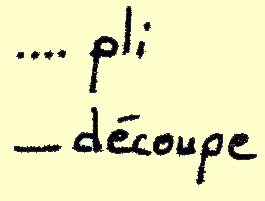 .... pli
__ découpe